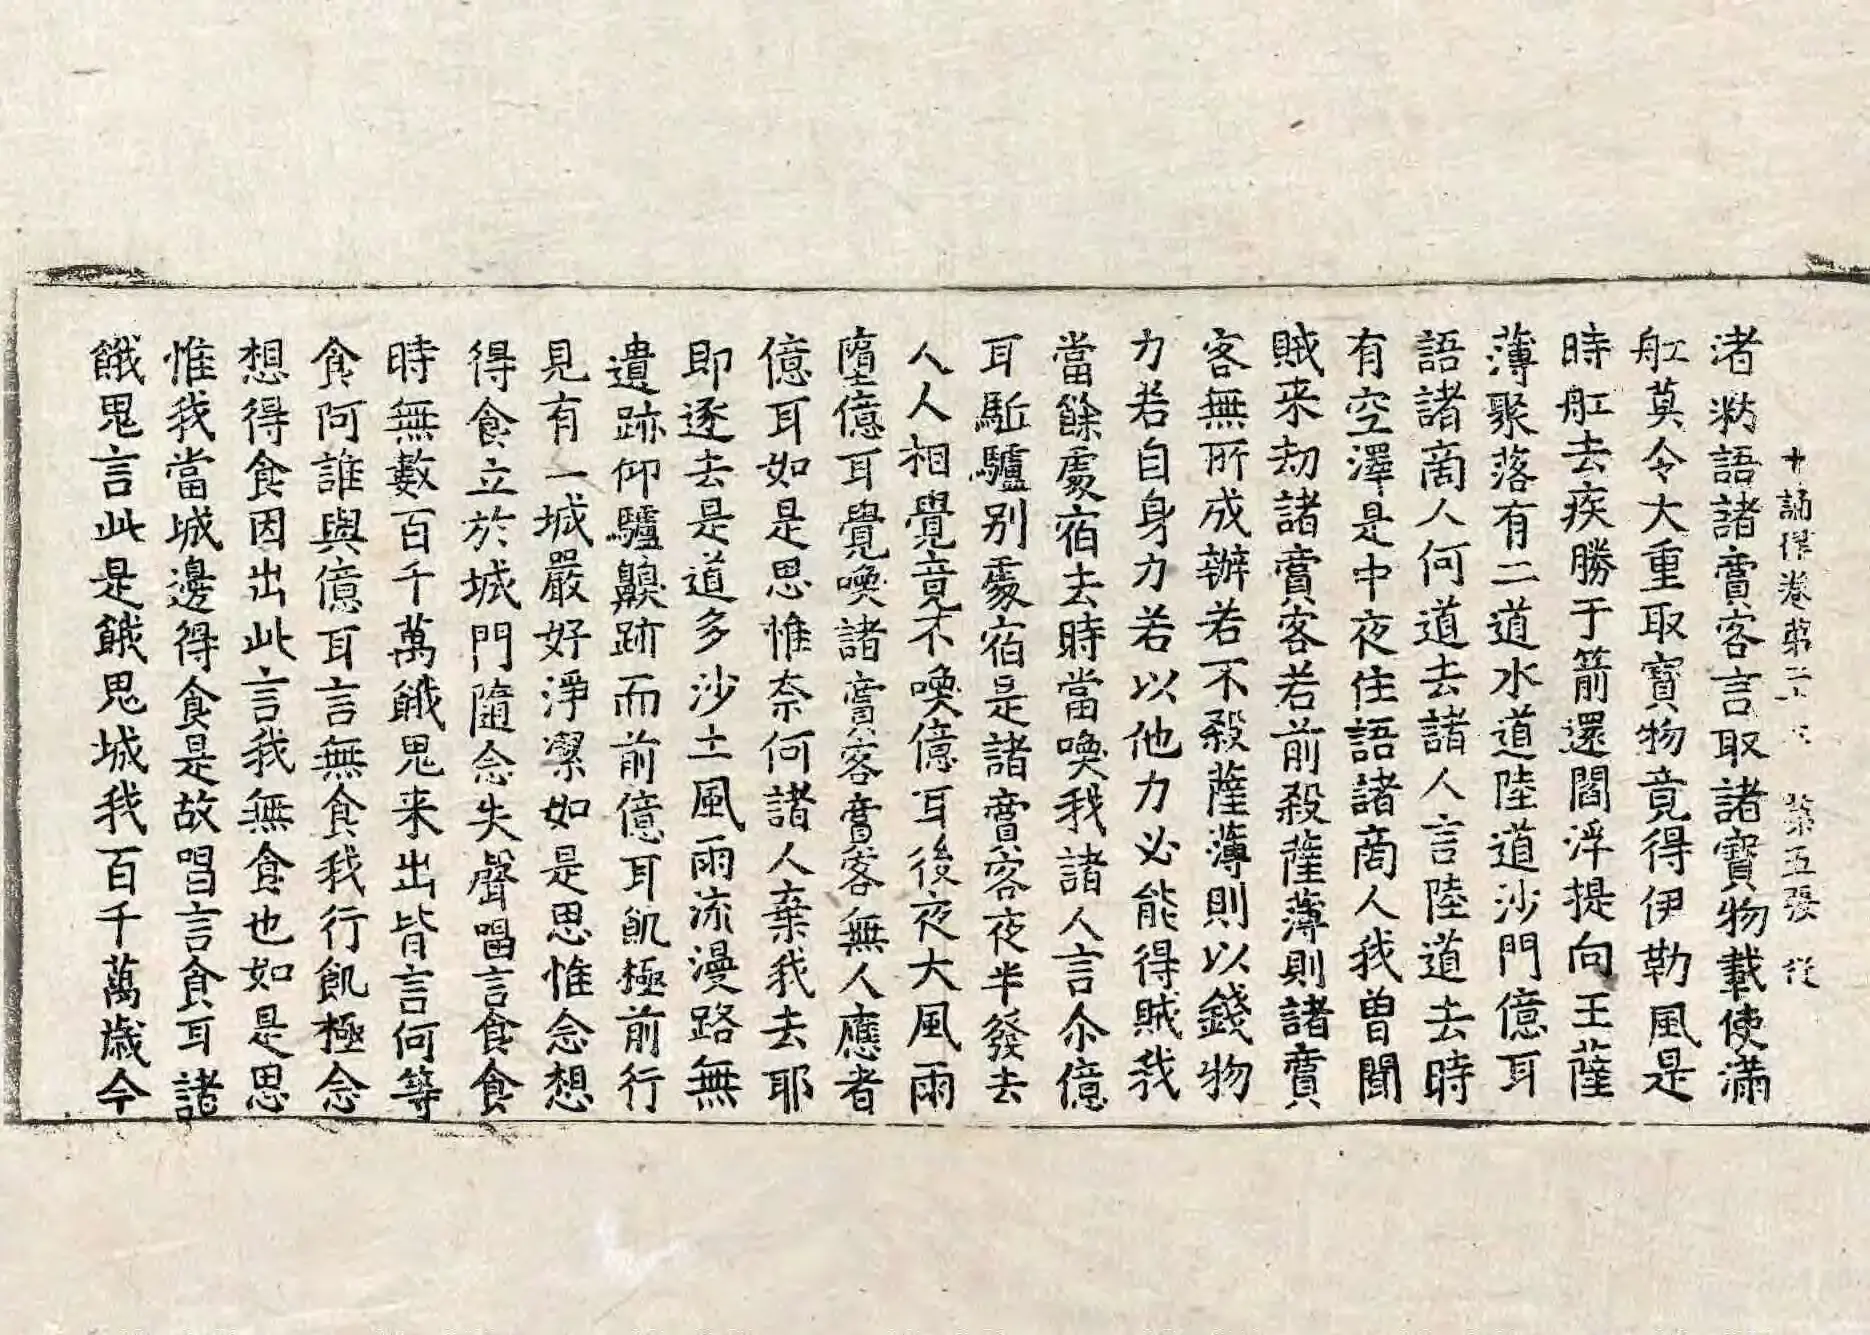 十誦律卷第二十 第五張 從
渚勑語諸賈客言取諸寶物載使滿
舡莫令大重取寶物竟得伊勒風是
時舡去疾勝于箭還閻浮提向王薩
薄聚落有二道水道陸道沙門億耳
語諸啇人何道去諸人言陸道去時
有空澤是中夜住語諸啇人我曽聞
賊来劫諸賈客若前殺薩薄則諸賈
客無所成辦若不殺薩薄則以錢物
力若自身力若以他力必能得賊我
當餘處宿去時當喚我諸人言尒億
耳駈驢别處宿是諸賈客夜半發去
人人相覺竟不喚億耳後夜大風雨
墮億耳覺喚諸賈客賈客無人應者
億耳如是思惟奈何諸人棄我去耶
即逐去是道多沙土風雨流漫路無
遺跡仰驢齅跡而前億耳飢極前行
見有一城嚴好淨潔如是思惟念想
得食立於城門隨念失聲唱言食食
時無數百千萬餓鬼来出皆言何等
食阿誰與億耳言無食我行飢極念
想得食因出此言我無食也如是思
惟我當城邊得食是故唱言食耳諸
餓鬼言此是餓鬼城我百千萬歲今